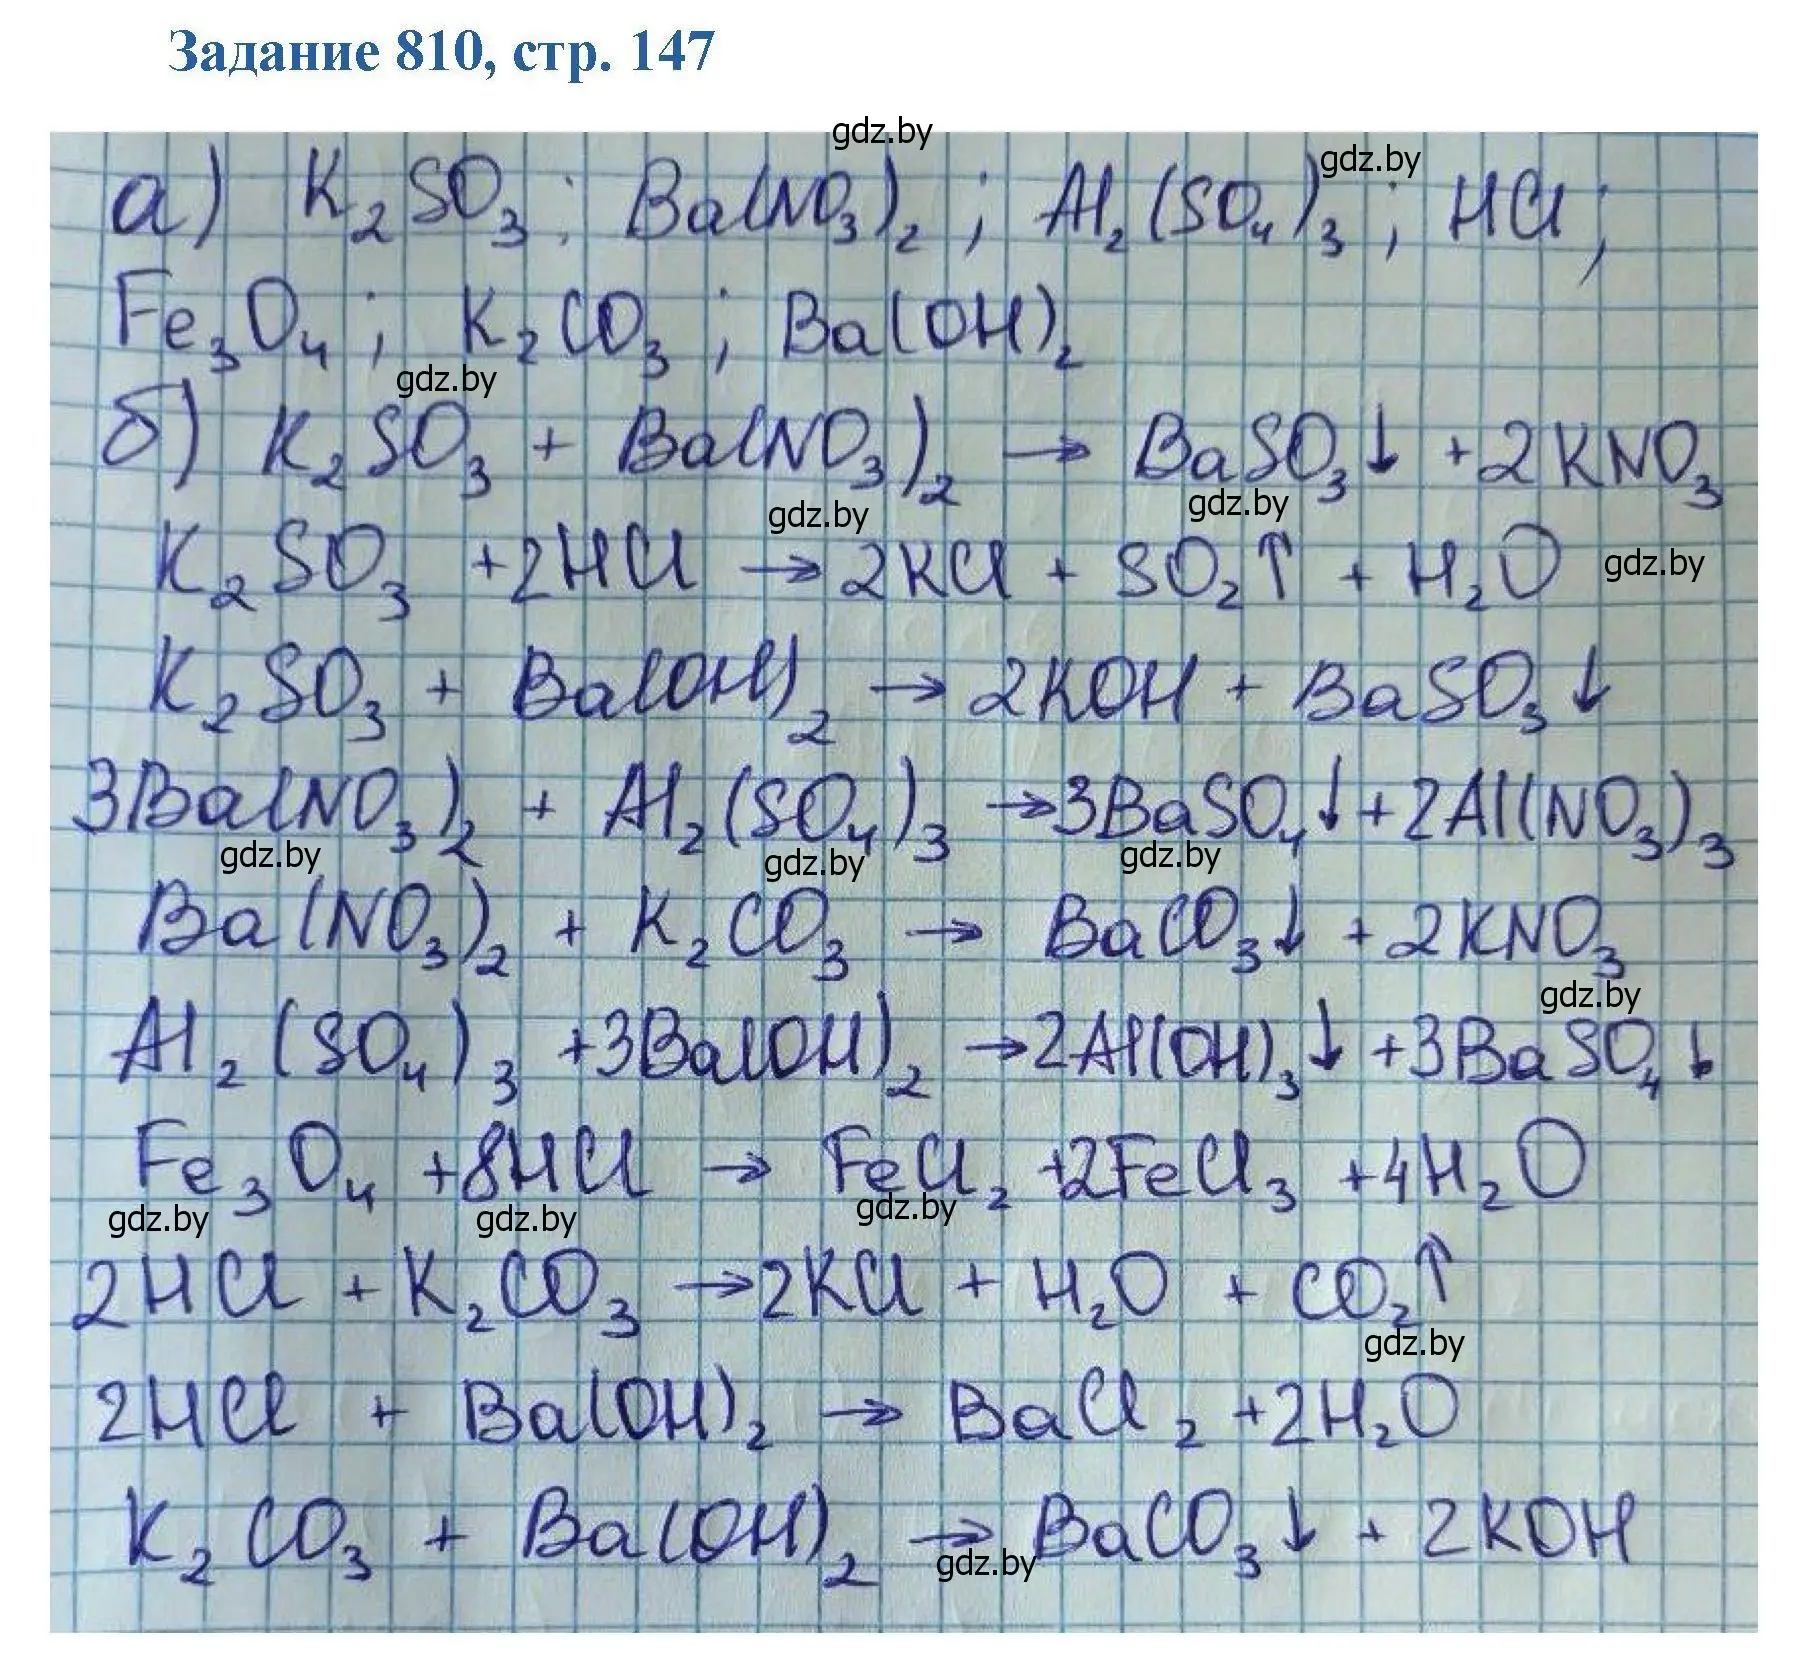 Задание 810, стр. 147
gdz.by
gdz.by
а) K₂SO₃; Ba(NO₃)₂; Al₂(SO₄)₃; HCl;
Fe₃O₄; K₂CO₃; Ba(OH)₂
gdz.by
б) K₂SO₃ + Ba(NO₃)₂ → BaSO₃↓ + 2KNO₃
gdz.by gdz.by
K₂SO₃ + 2HCl → 2KCl + SO₂↑ + H₂O gdz.by
K₂SO₃ + Ba(OH)₂ → 2KOH + BaSO₃↓
3Ba(NO₃)₂ + Al₂(SO₄)₃ → 3BaSO₄↓ + 2Al(NO₃)₃
gdz.by gdz.by gdz.by
Ba(NO₃)₂ + K₂CO₃ → BaCO₃↓ + 2KNO₃
gdz.by
Al₂(SO₄)₃ + 3Ba(OH)₂ → 2Al(OH)₃↓ + 3BaSO₄↓
Fe₃O₄ + 8HCl → FeCl₂ + 2FeCl₃ + 4H₂O
gdz.by gdz.by gdz.by
2HCl + K₂CO₃ → 2KCl + H₂O + CO₂↑
gdz.by
2HCl + Ba(OH)₂ → BaCl₂ + 2H₂O
K₂CO₃ + Ba(OH)₂ → BaCO₃↓ + 2KOH
gdz.by